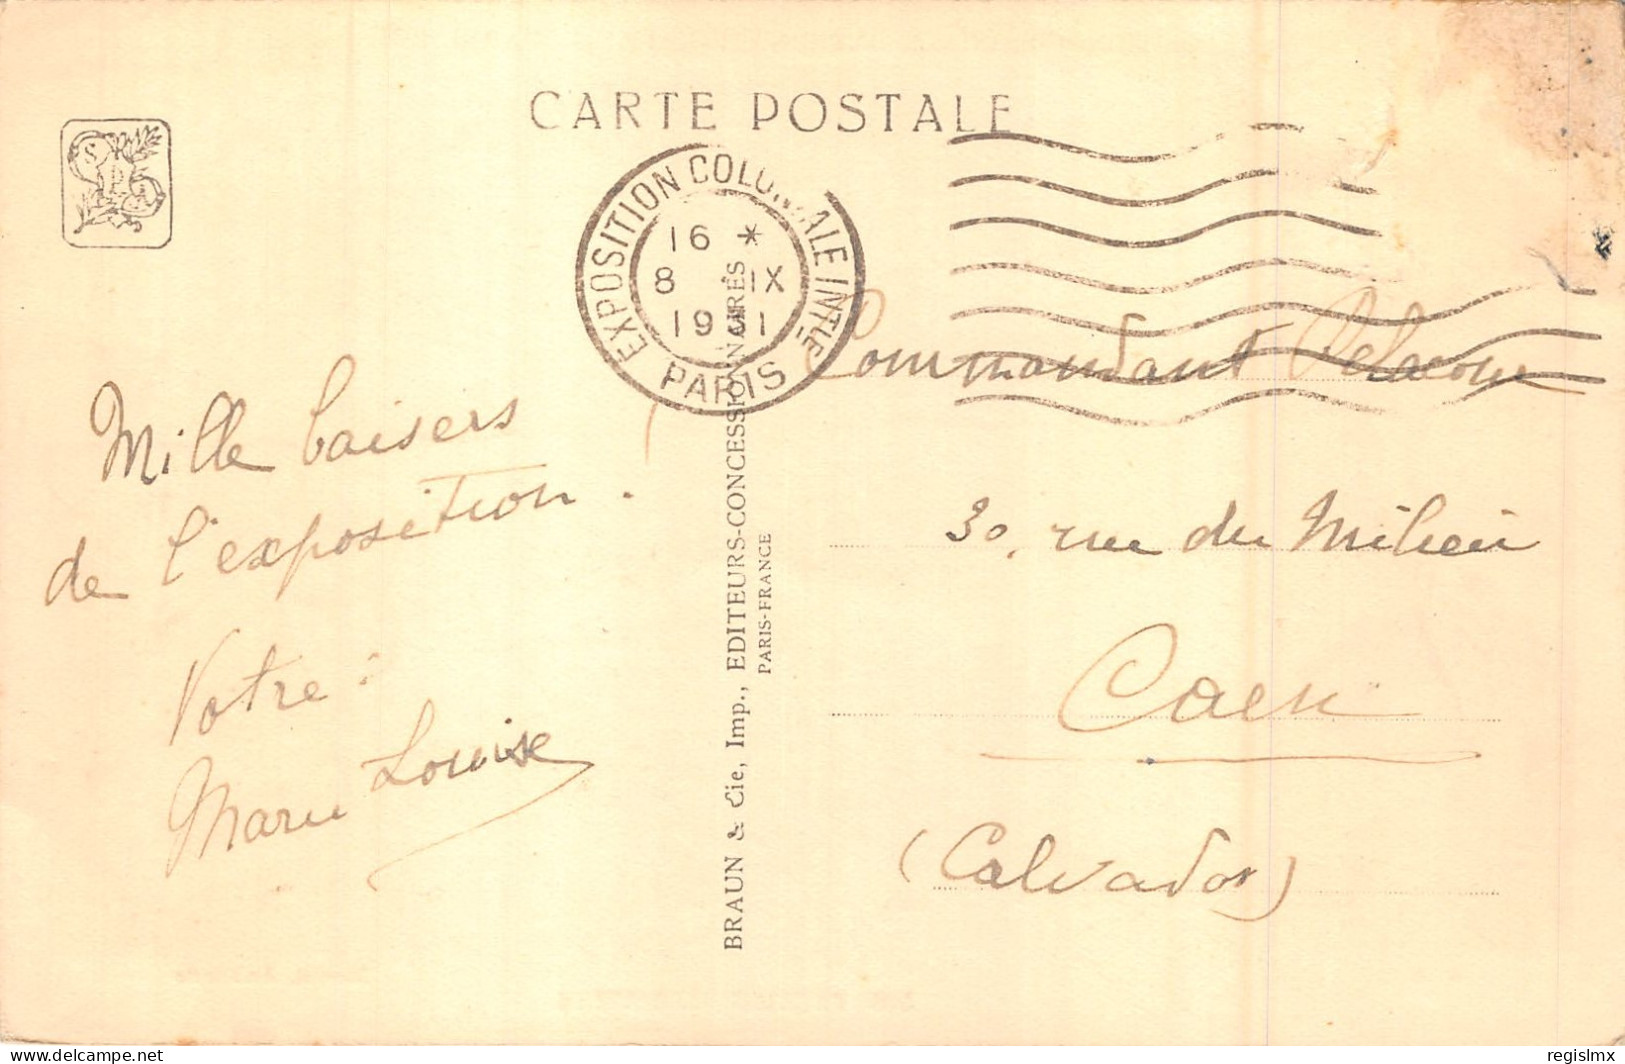 CARTE POSTALE
EXPOSITION COLONIALE INTLE
PARIS
16 *
8 IX
1931
Mille baisers
de l'exposition.
Votre :
Marie Louise
BRAUN & Cie, Imp., EDITEURS-CONCESSIONNAIRES
PARIS-FRANCE
Commandant
30, rue du Milieu
Caen
(Calvados)
www.delcampe.net
regislmx